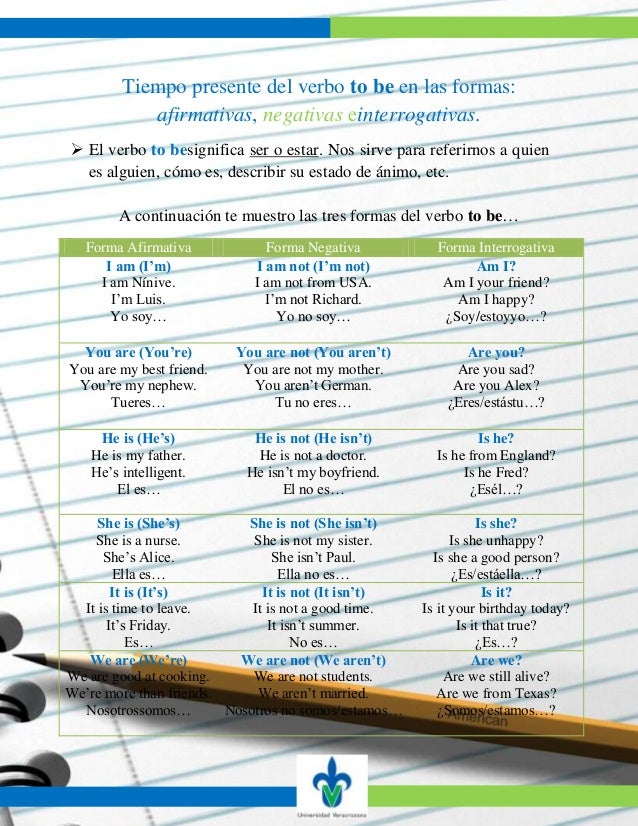 Tiempo presente del verbo to be en las formas:
afirmativas, negativas einterrogativas.
➢ El verbo to besignifica ser o estar. Nos sirve para referirnos a quien
es alguien, cómo es, describir su estado de ánimo, etc.
A continuación te muestro las tres formas del verbo to be…
Forma Afirmativa Forma Negativa Forma Interrogativa
I am (I’m) I am not (I’m not) Am I?
I am Nínive. I am not from USA. Am I your friend?
I’m Luis. I’m not Richard. Am I happy?
Yo soy… Yo no soy… ¿Soy/estoyyo…?
You are (You’re) You are not (You aren’t) Are you?
You are my best friend. You are not my mother. Are you sad?
You’re my nephew. You aren’t German. Are you Alex?
Tueres… Tu no eres… ¿Eres/estástu…?
He is (He’s) He is not (He isn’t) Is he?
He is my father. He is not a doctor. Is he from England?
He’s intelligent. He isn’t my boyfriend. Is he Fred?
El es… El no es… ¿Esél…?
She is (She’s) She is not (She isn’t) Is she?
She is a nurse. She is not my sister. Is she unhappy?
She’s Alice. She isn’t Paul. Is she a good person?
Ella es… Ella no es… ¿Es/estáella…?
It is (It’s) It is not (It isn’t) Is it?
It is time to leave. It is not a good time. Is it your birthday today?
It’s Friday. It isn’t summer. Is it that true?
Es… No es… ¿Es…?
We are (We’re) We are not (We aren’t) Are we?
We are good at cooking. We are not students. Are we still alive?
We’re more than friends. We aren’t married. Are we from Texas?
Nosotrossomos… Nosotros no somos/estamos… ¿Somos/estamos…?
American
Universidad Veracruzana